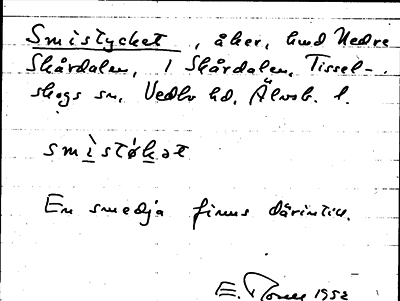 Smistycket, åker, hmd Nedre
Skårdalen, 1 Skårdalen, Tissel-
skogs sn, Vedbo hd, Älvsb. l.
smìstøkət
En smedja finns därintill.
E. 1952